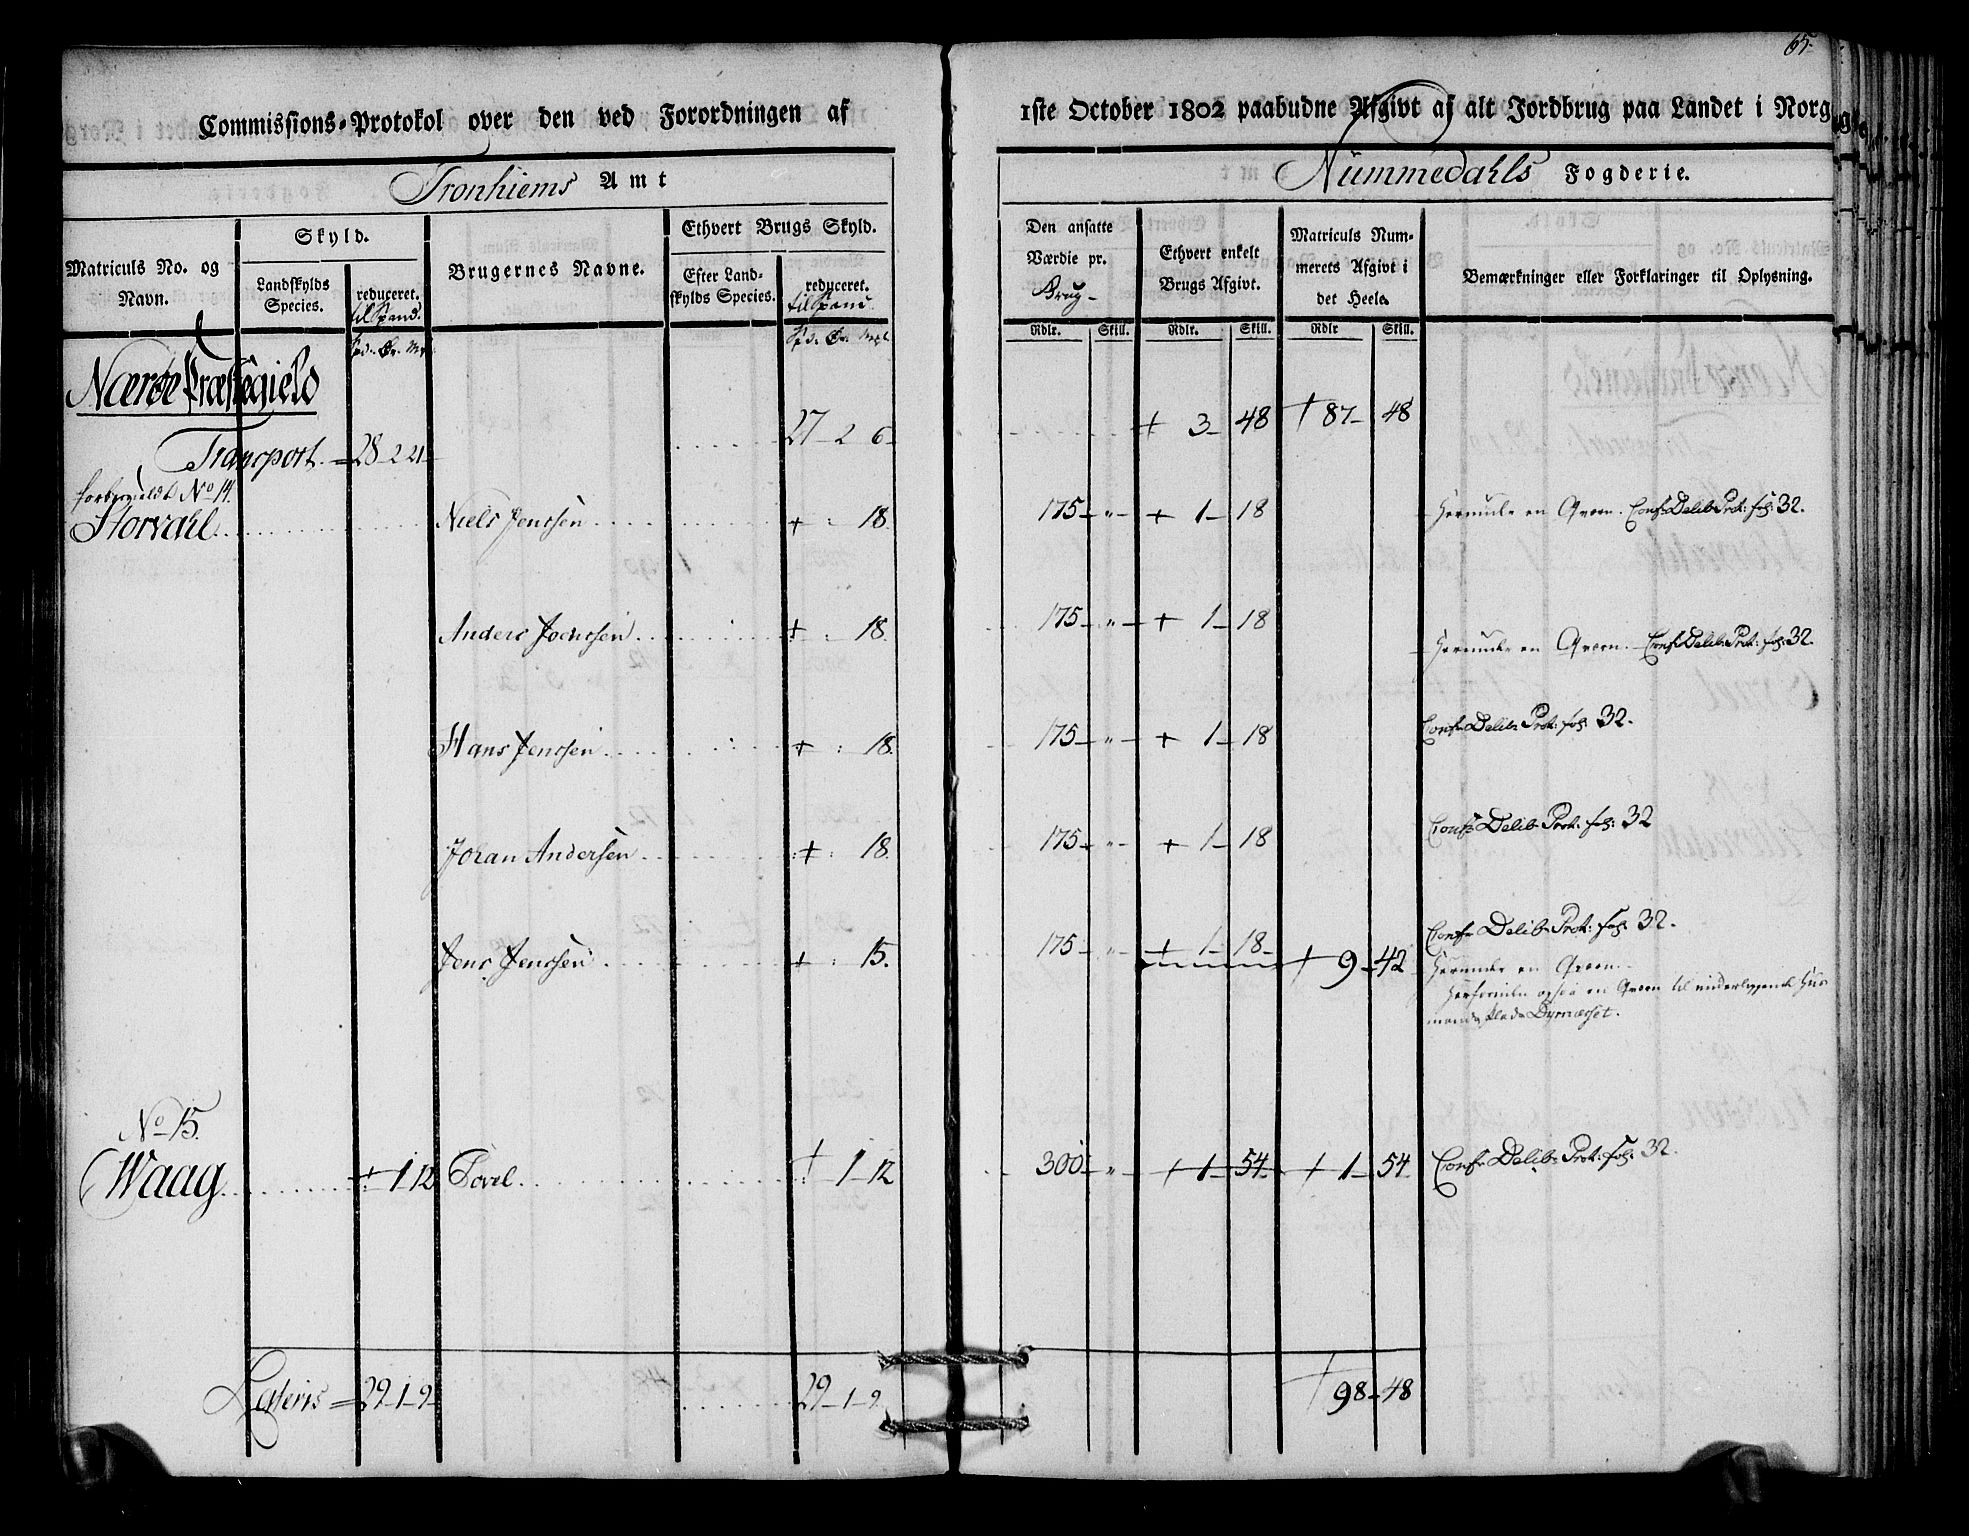 65.
Commissions-Protokol over den ved Forordningen af 1ste October 1802 paabudne Afgivt af alt Jordbrug paa Landet i Norg
Tronhiems Amt
Nummedahls Fogderie.
Matriculs No. og Navn.
Skyld.
Landskylds Species.
reduceret. til Spand.
Spd. Ør. Mrk
Brugernes Navne.
Ethvert Brugs Skyld.
Efter Landskylds Species.
reduceret. til Spand
Spd. Ør. Mrk
Den ansatte Værdie pr. Brug-
Rdlr. Skill.
Ethvert enkelt Brugs Afgivt.
Rdlr. Skill.
Matriculs Nummerets Afgivt i det Heele.
Rdlr Skill.
Bemærkninger eller Forklaringer til Oplysning.
Nærøe Præstegield
Transport. 28-2 21 27-2 6 + 3-48 + 87-48
forbemeldt No 14.
Storvahl Niels Jenssen + : 18. 175-"- + 1-18 Herunder en Qværn. Conf. Delib. Prot: fol: 32.
Anders Joenssen + : 18. 175-"- + 1-18 Herunder en Qværn. Conf. Delib. Prot: fol: 32.
Hans Jenssen + : 18. 175-"- + 1-18 Conf. Delib. Prot: fol: 32.
Johan Andersen + : 18. 175-"- + 1-18 Conf. Delib. Prot: fol: 32
Jens Jenssen + : 15. 175-"- + 1-18 + 9-42 Conf. Delib. Prot: fol: 32.
Herunder en Qværn.
en Qværn til underliggende Hus
mands Plads Dyrnæsset.
No 15.
Waag + 1 12 Povel + 1-12 300-"- + 1-54 + 1-54 Conf. Delib. Prot: fol: 32.
Lateris 29-1-9 29-1-9. + 98-48